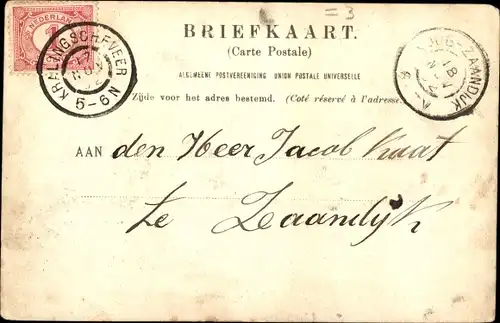 =3
NEDERLAND
KRALINGSCHEVEER
NOV
5-6 N
BRIEFKAART.
(Carte Postale)
ALGEMEENE POSTVEREENIGING UNION POSTALE UNIVERSELLE
Zijde voor het adres bestemd. (Coté réservé à l'adresse.)
ZAANDIJK
AAN den Heer Jacob Kaat
te Zaandijk